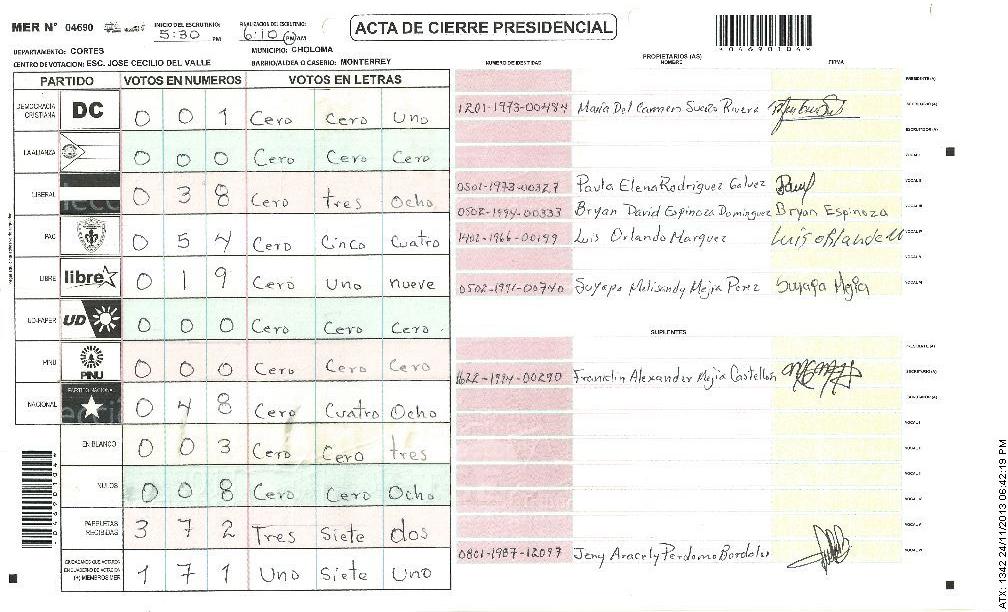 MER N° 04690
INICIO DEL ESCRUTINIO: 5:30 PM
FINALIZACION DEL ESCRUTINIO: 6:10 PM AM
ACTA DE CIERRE PRESIDENCIAL
* 0 4 6 9 0 1 0 4 *
DEPARTAMENTO: CORTES
MUNICIPIO: CHOLOMA
CENTRO DE VOTACION: ESC. JOSE CECILIO DEL VALLE
BARRIO/ALDEA O CASERIO: MONTERREY
PARTIDO VOTOS EN NUMEROS VOTOS EN LETRAS
DEMOCRACIA CRISTIANA DC 0 0 1 Cero Cero Uno
LA ALIANZA 0 0 0 Cero Cero Cero
LIBERAL 0 3 8 Cero tres Ocho
PAC 0 5 4 Cero Cinco Cuatro
LIBRE libre 0 1 9 Cero Uno nueve
UD-FAPER UD 0 0 0 Cero Cero Cero
PINU PINU 0 0 0 Cero Cero Cero
NACIONAL PARTIDO NACIONAL 0 4 8 Cero Cuatro Ocho
EN BLANCO 0 0 3 Cero Cero tres
NULOS 0 0 8 Cero Cero Ocho
PAPELETAS RECIBIDAS 3 7 2 Tres Siete dos
1 7 1 Uno Siete Uno
PROPIETARIOS (AS)
NUMERO DE IDENTIDAD NOMBRE FIRMA
PRESIDENTE(A)
1201-1973-00484 Maria Del Carmen Suazo Rivera SECRETARIO(A)
ESCRUTADOR(A)
VOCAL I
0501-1973-00327 Paula Elena Rodriguez Galvez VOCAL II
0502-1994-00333 Bryan David Espinoza Dominguez Bryan Espinoza VOCAL III
1402-1966-00199 Luis Orlando Marquez Luis Orlando M VOCAL IV
VOCAL V
0502-1991-00740 Suyapa Melisandy Mejia Perez Suyapa Mejia VOCAL VI
SUPLENTES
PRESIDENTE(A)
1622-1994-00290 Franclin Alexander Mejia Castellon SECRETARIO(A)
ESCRUTADOR(A)
VOCAL I
VOCAL II
VOCAL III
VOCAL IV
VOCAL V
0801-1987-12097 Jeny Aracely Perdomo Bardales VOCAL VI
ATX: 1342 24/11/2013 06:42:19 PM